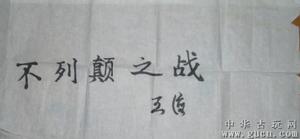 不列颠之战
中华古玩网
www.gucn.com